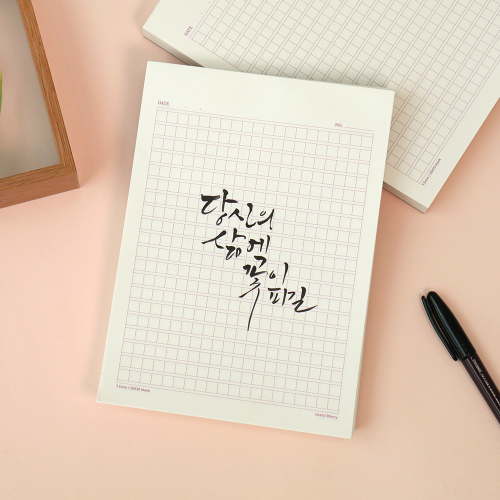 DATE
NO.
당신의
삶에
꽃이
피길
DATE